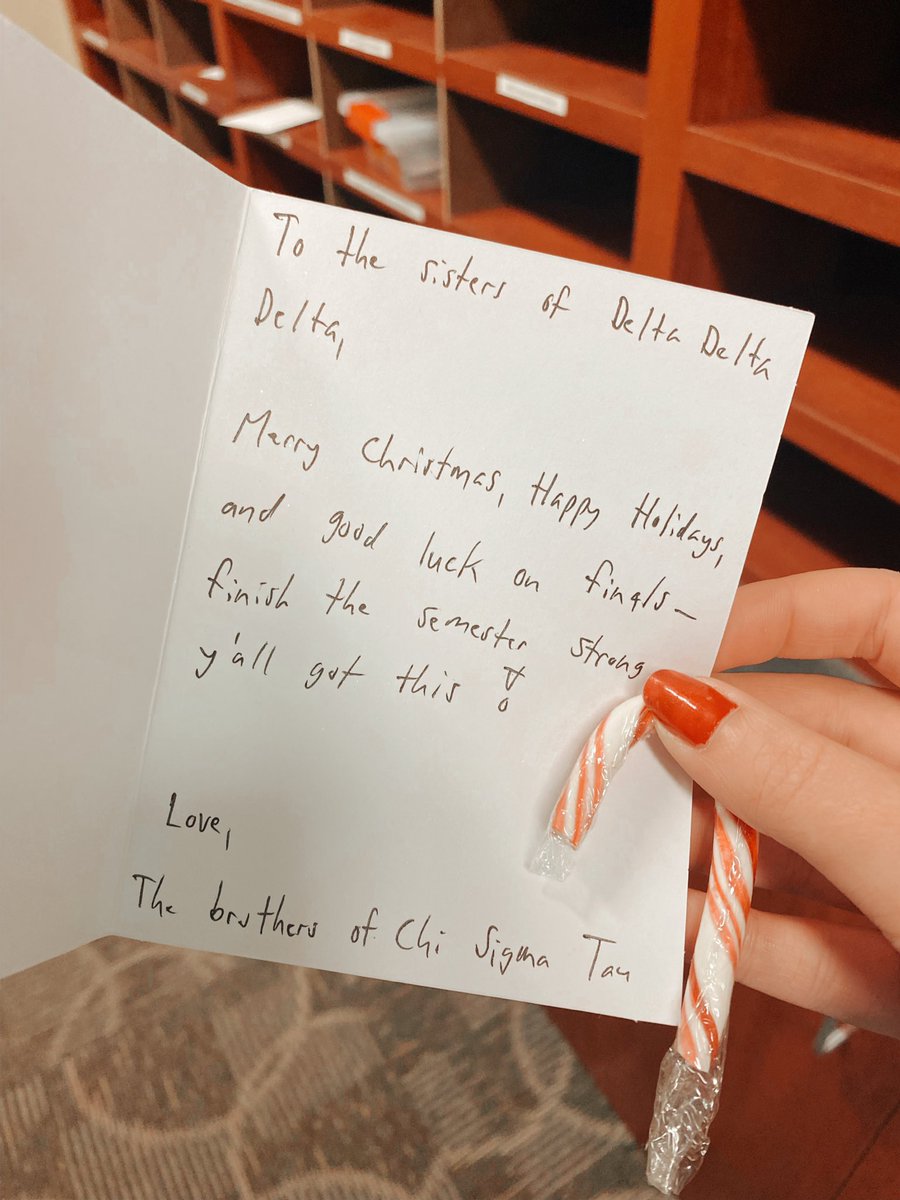 To the sisters of Delta Delta
Delta,
Merry Christmas, Happy Holidays,
and good luck on finals–
finish the semester strong
y'all got this!
Love,
The brothers of Chi Sigma Tau